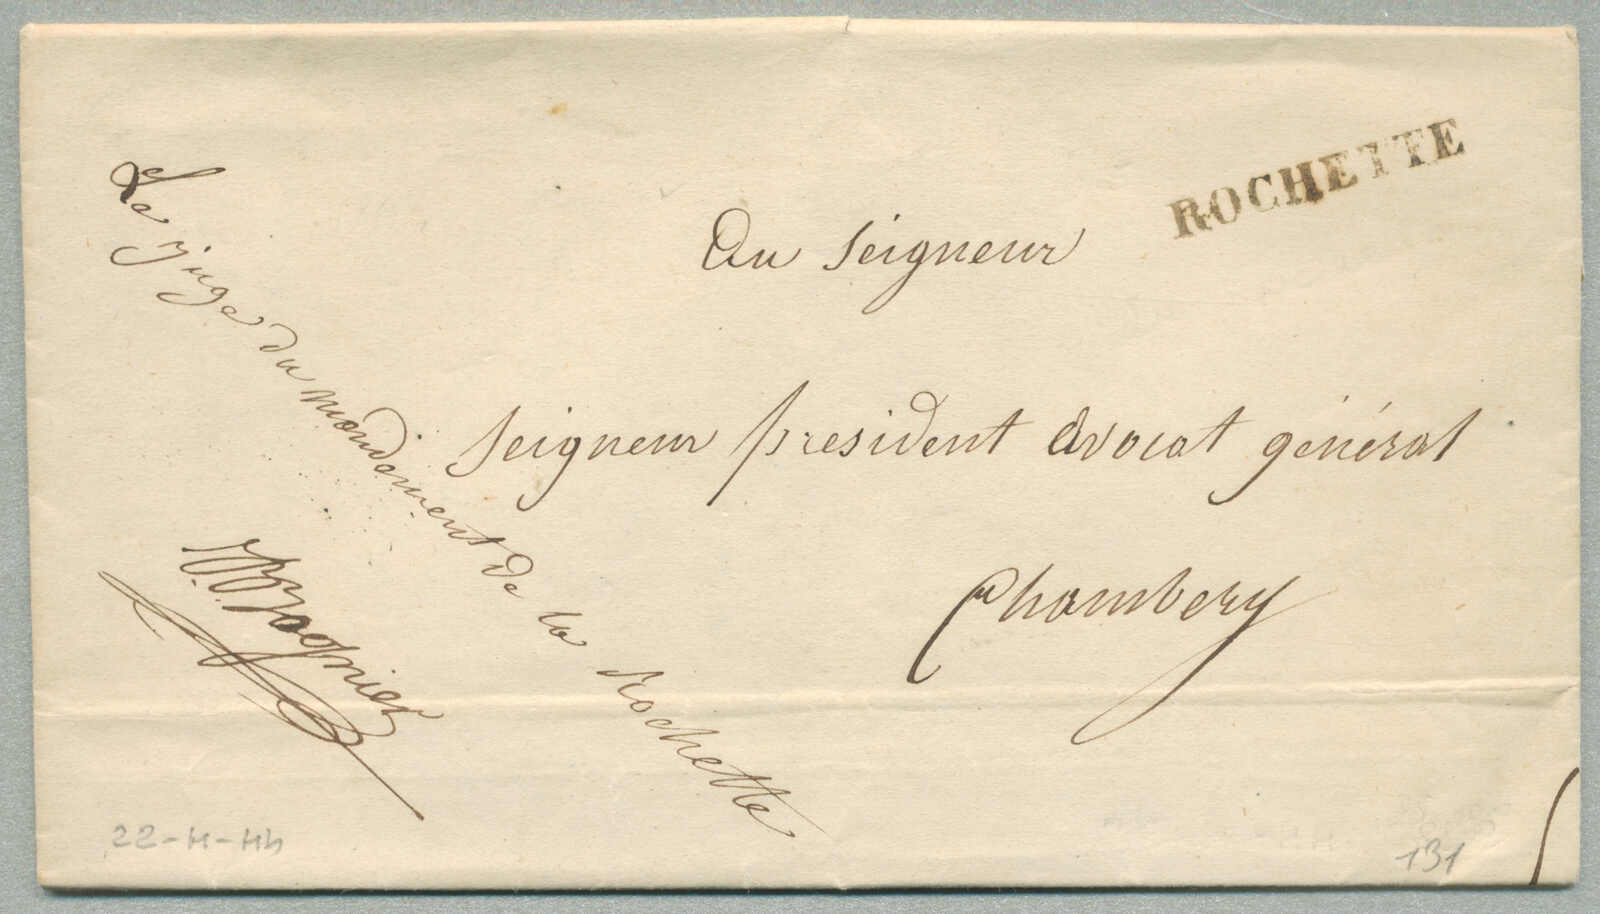 ROCHETTE
Au Seigneur
Seigneur président Avocat général
Chambery
Le juge du mandement de la Rochette
131